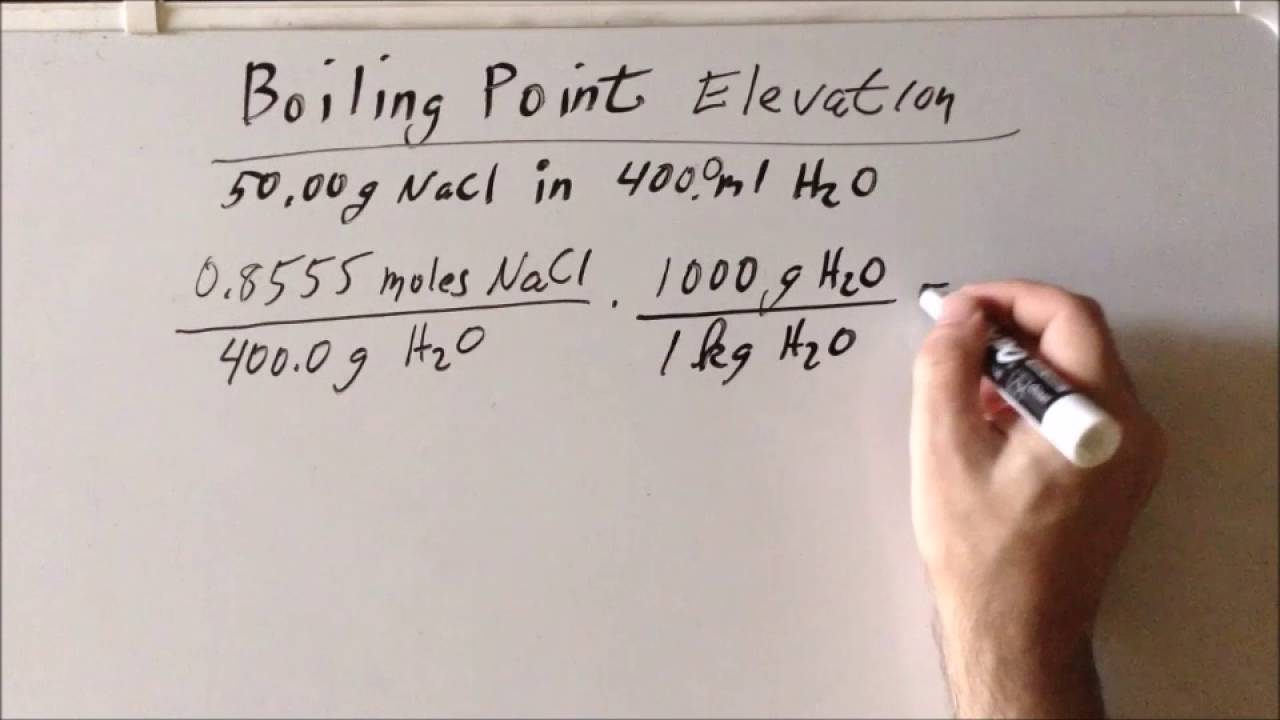 Boiling Point Elevation
50.00g NaCl in 400.0ml H₂O
0.8555 moles NaCl
400.0g H₂O
·
1000 g H₂O
1 kg H₂O
=